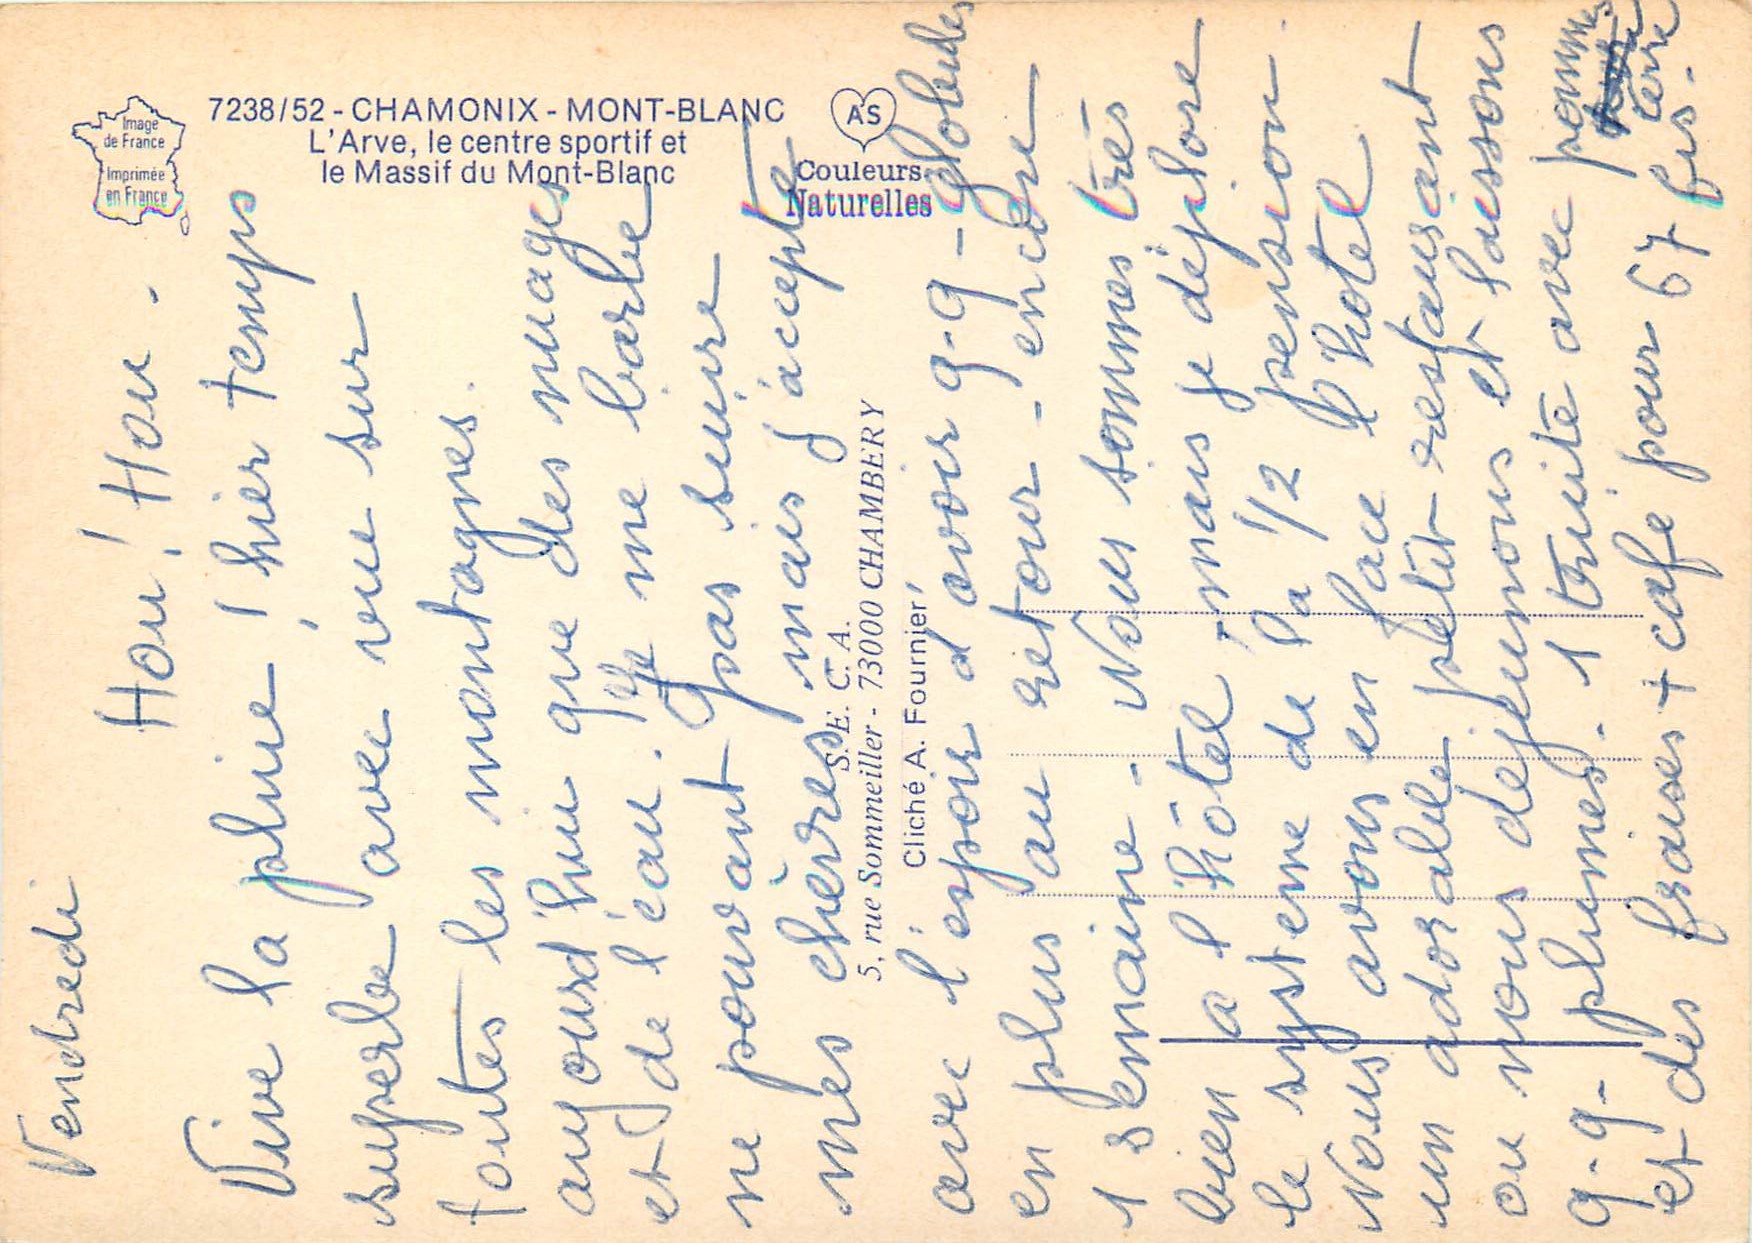 7238/52 - CHAMONIX - MONT-BLANC
L'Arve, le centre sportif et
le Massif du Mont-Blanc
Image
de France
Imprimée
en France
AS
Couleurs
Naturelles
S. E. C. A.
5, rue Sommeiller - 73000 CHAMBERY
Cliché A. Fournier
Vendredi
Hou! Hou -
Vive la pluie! hier temps
superbe avec vue sur
toutes les montagnes.
aujourd'hui que des nuages
et de l'eau. Je me barbe
ne pouvant pas suivre
mes chèvres mais j'accepte
avec l'espoir d'avoir q-q-globules
en plus au retour - encore
1 semaine - Nous sommes très
bien a l'hôtel - mais je déplore
le systeme de la 1/2 pension.
Nous avons en face l'hotel
un adorable petit restaurant
ou nous dejeunons et laissons
q-q- plumes. 1 truite avec pommes
terre
et des fraises + café pour 67 frs.